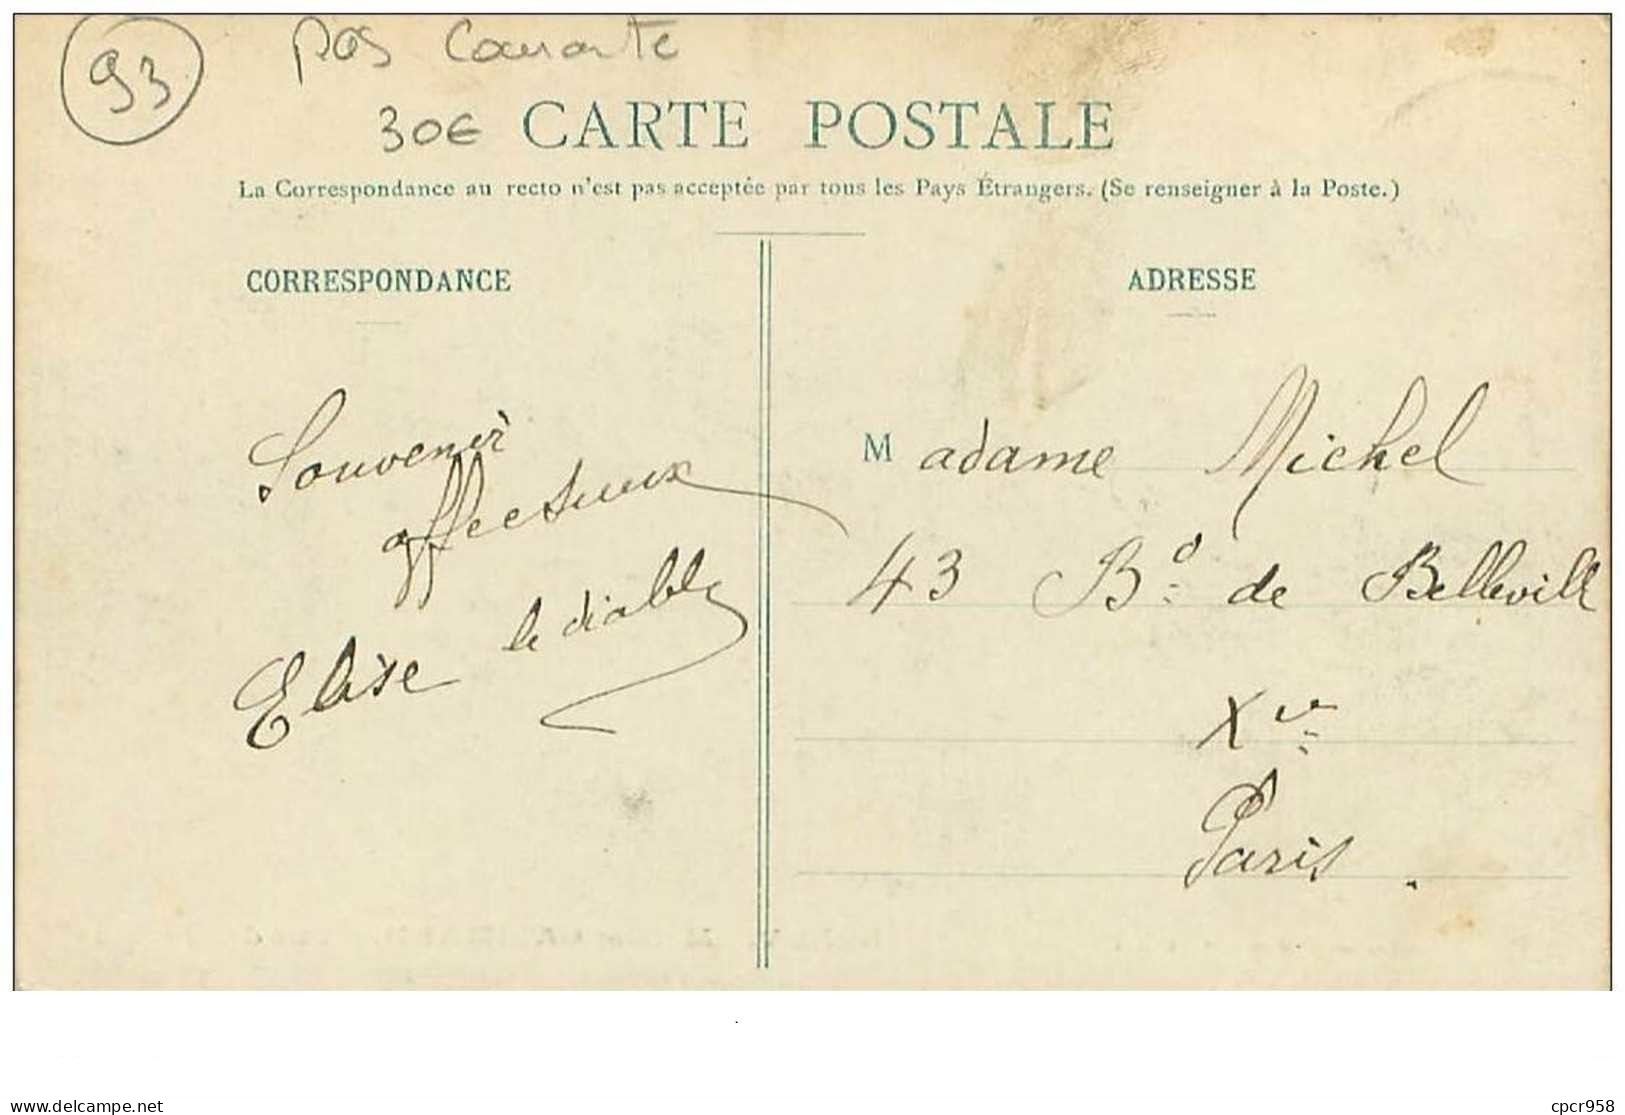 93
pas courante
30€
CARTE POSTALE
La Correspondance au recto n'est pas acceptée par tous les Pays Étrangers. (Se renseigner à la Poste.)
CORRESPONDANCE
Souvenir
affectueux
Elise le diable
ADRESSE
Madame Michel
43 Bd de Belleville
Xve
Paris.
www.delcampe.net
cpcr958